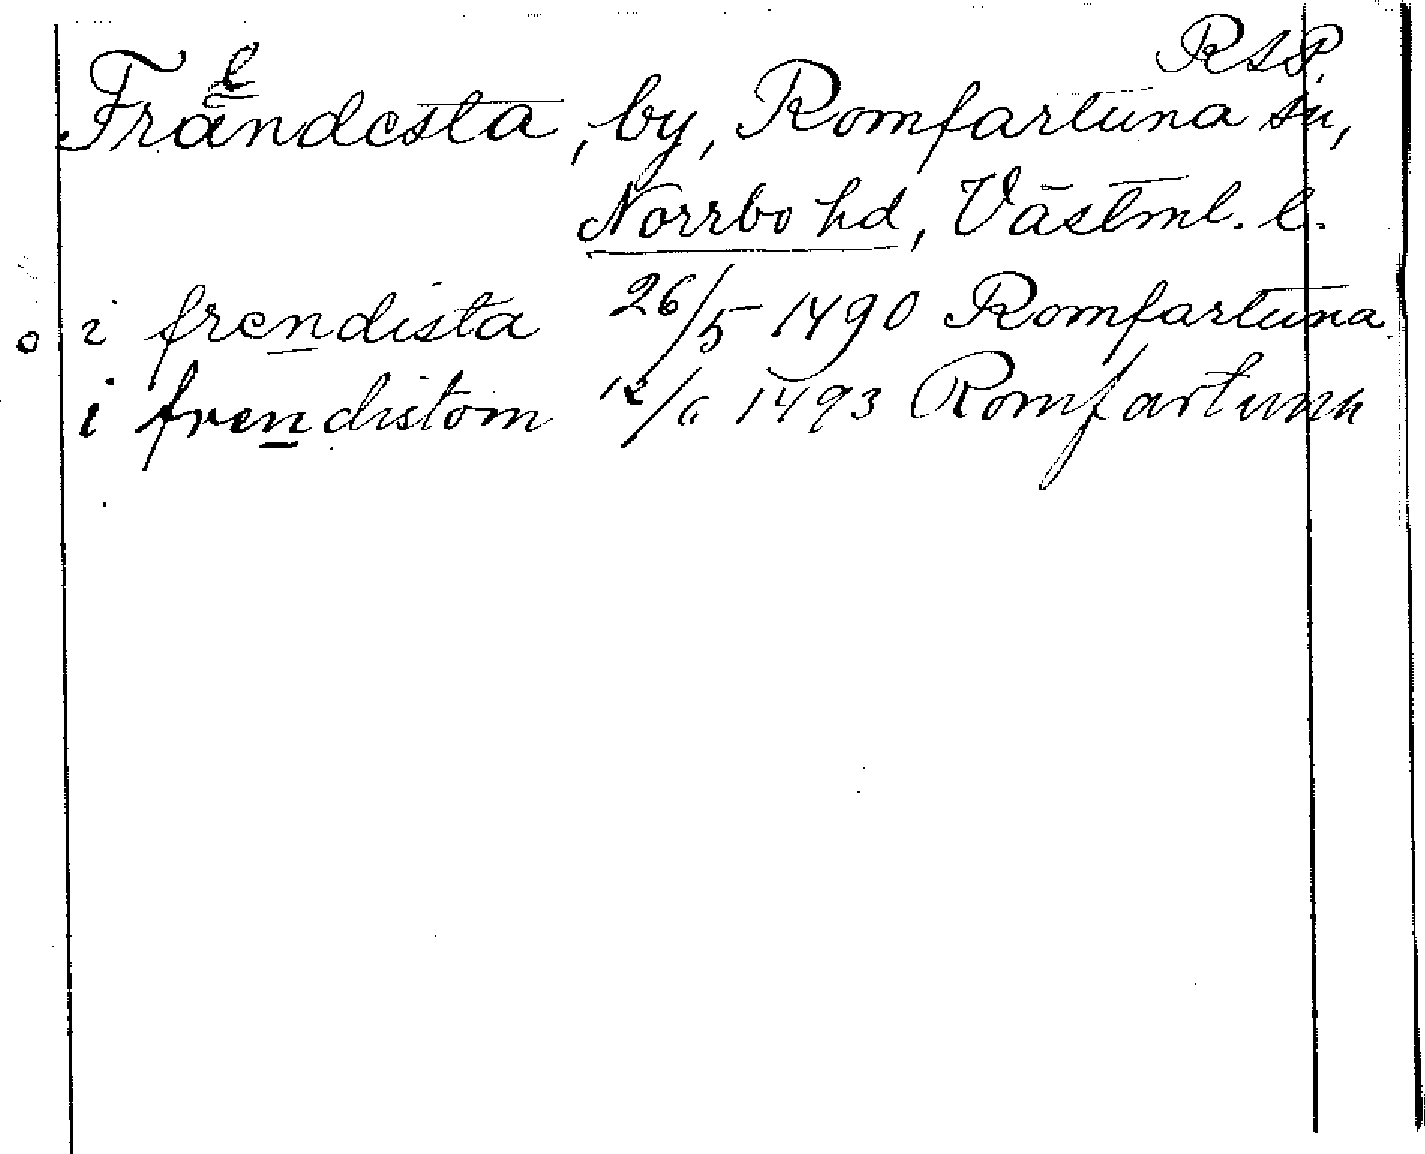 RSP.
e
Frändesta, by, Romfartuna sn,
Norrbo hd, Västml. l.
i frendista 26/5 1490 Romfartuna
i frendistom 12/6 1493 Romfartuna